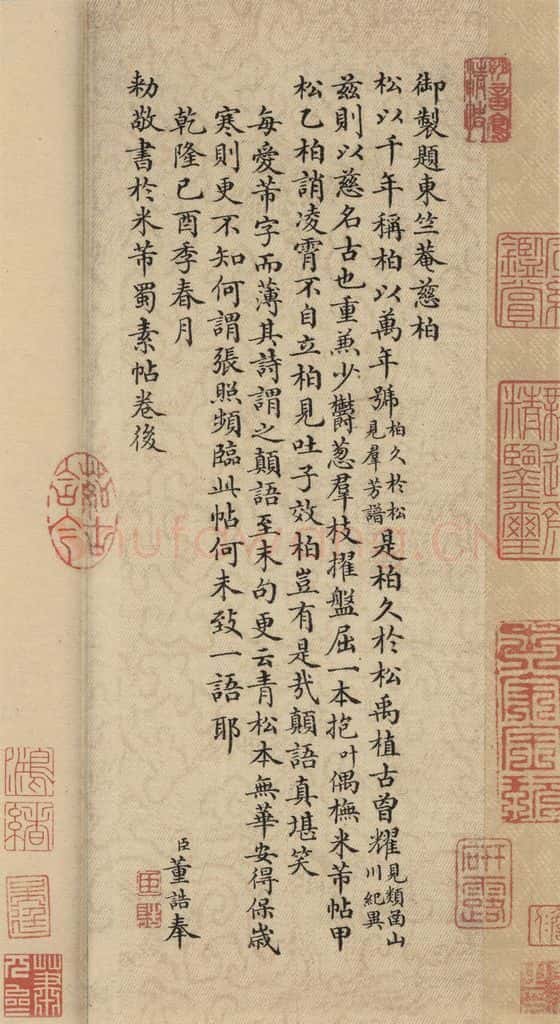 御製題東竺菴慈柏
松以千年稱柏以萬年號柏久於松見羣芳譜是柏久於松禹植古曾耀見類函山川紀異
茲則以慈名古也重兼少鬱葱羣枝擢盤屈一本抱叶偶橅米芾帖甲
松乙柏誚凌霄不自立柏見吐子效柏豈有是哉顛語真堪笑
每愛芾字而薄其詩謂之顛語至末句更云青松本無華安得保歲
寒則更不知何謂張照頻臨此帖何未致一語耶
乾隆己酉季春月 臣董誥奉
勅敬書於米芾蜀素帖卷後
研露